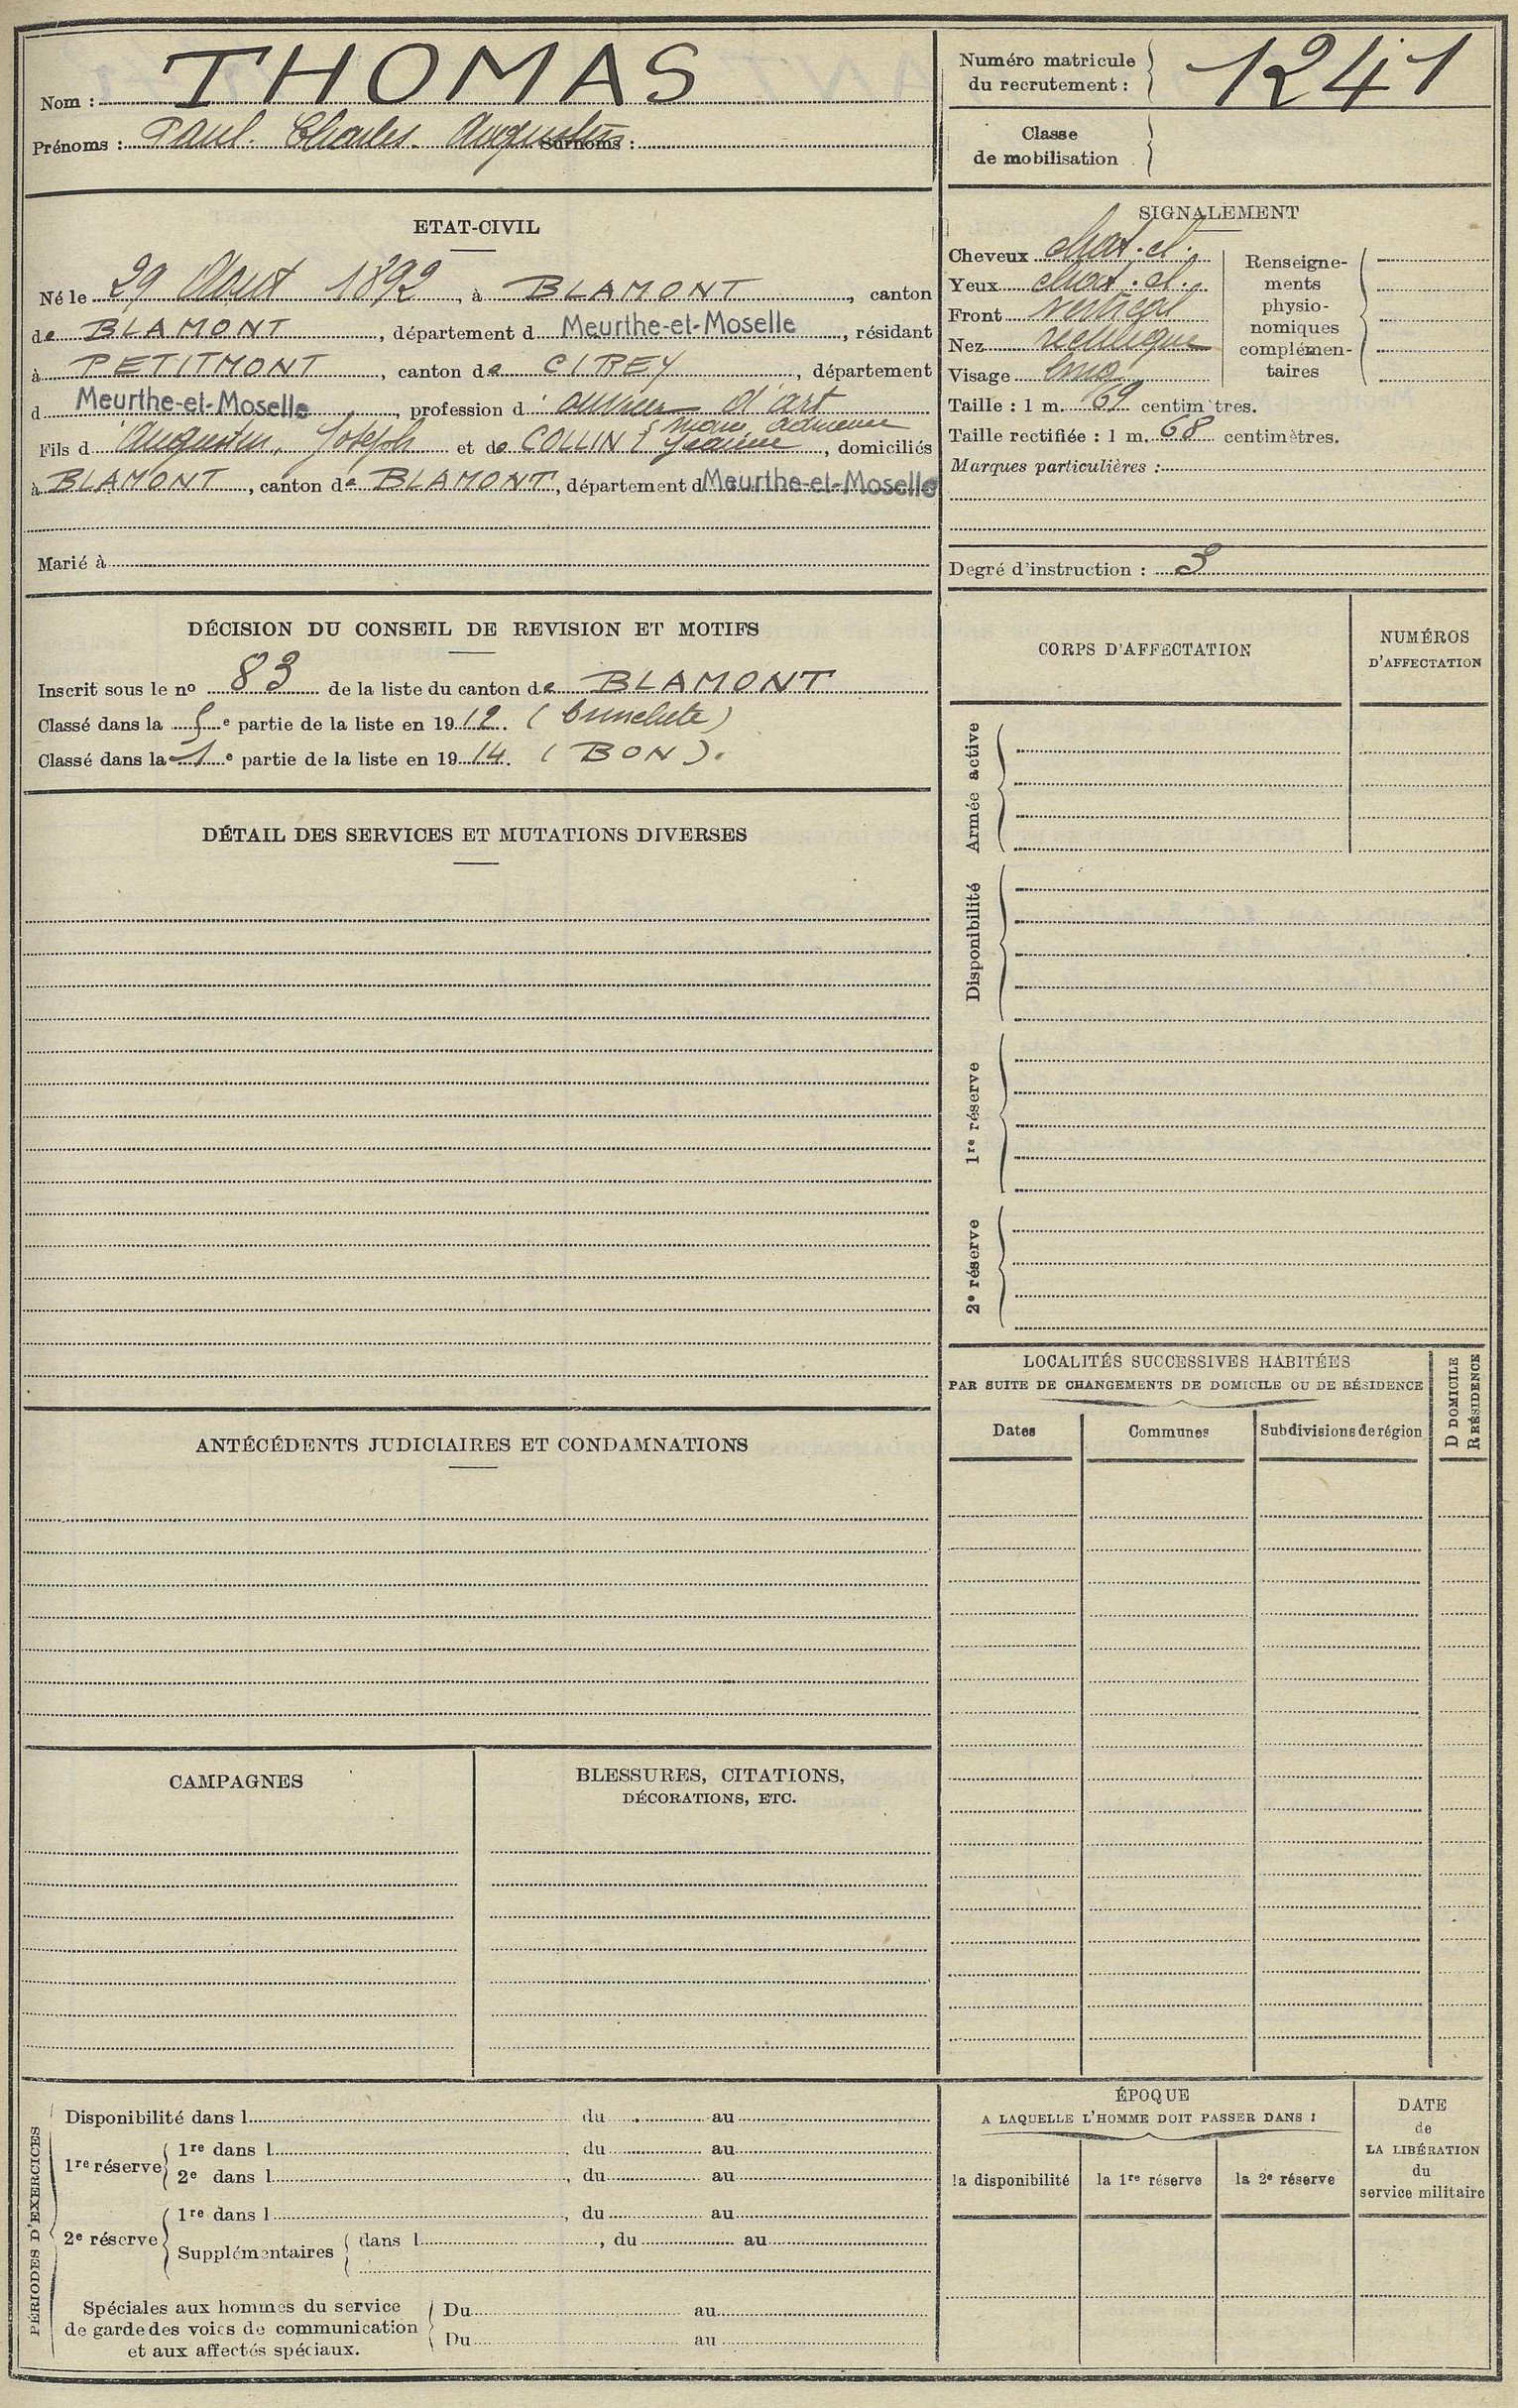 Nom : THOMAS
Prénoms : Paul. Charles. Augustin Surnoms :
Numéro matricule du recrutement : 1241
Classe de mobilisation
ETAT-CIVIL
Né le 29 Aout 1892, à BLAMONT, canton
de BLAMONT, département d Meurthe-et-Moselle, résidant
à PETITMONT, canton de CIREY, département
d Meurthe-et-Moselle, profession d' ouvrier d'art
Fils d' Augustin, Joseph et de COLLIN, Jeanne, domiciliés
à BLAMONT, canton de BLAMONT, département d Meurthe-et-Moselle
Marié à
SIGNALEMENT
Cheveux chat. cl.
Yeux chat. cl.
Front vertical
Nez rectiligne
Visage
Taille : 1 m. 69 centimètres.
Taille rectifiée : 1 m. 68 centimètres.
Marques particulières :
Renseigne-
ments
physio-
nomiques
complémen-
taires
Degré d'instruction : 3
DÉCISION DU CONSEIL DE REVISION ET MOTIFS
Inscrit sous le no 83 de la liste du canton de BLAMONT
Classé dans la 5e partie de la liste en 1912. (
Classé dans la 1e partie de la liste en 1914. (BON).
CORPS D'AFFECTATION
NUMÉROS
D'AFFECTATION
Armée active
Disponibilité
1re réserve
2e réserve
DÉTAIL DES SERVICES ET MUTATIONS DIVERSES
ANTÉCÉDENTS JUDICIAIRES ET CONDAMNATIONS
LOCALITÉS SUCCESSIVES HABITÉES
PAR SUITE DE CHANGEMENTS DE DOMICILE OU DE RÉSIDENCE
D DOMICILE
R RÉSIDENCE
Dates Communes Subdivisions de région
CAMPAGNES
BLESSURES, CITATIONS,
DÉCORATIONS, ETC.
PÉRIODES D'EXERCICES
Disponibilité dans l du au
1re réserve
1re dans l, du au
2e dans l, du au
2e réserve
1re dans l, du au
Supplémentaires dans l, du au
Spéciales aux hommes du service
de garde des voies de communication
et aux affectés spéciaux.
Du au
Du au
ÉPOQUE
A LAQUELLE L'HOMME DOIT PASSER DANS :
la disponibilité la 1re réserve la 2e réserve
DATE
de
LA LIBÉRATION
du
service militaire